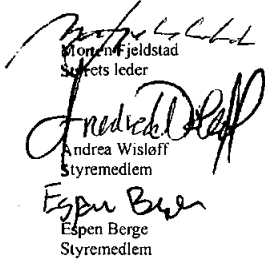 Morten Fjeldstad
Styrets leder
Andrea Wisløff
Styremedlem
Espen Berge
Espen Berge
Styremedlem